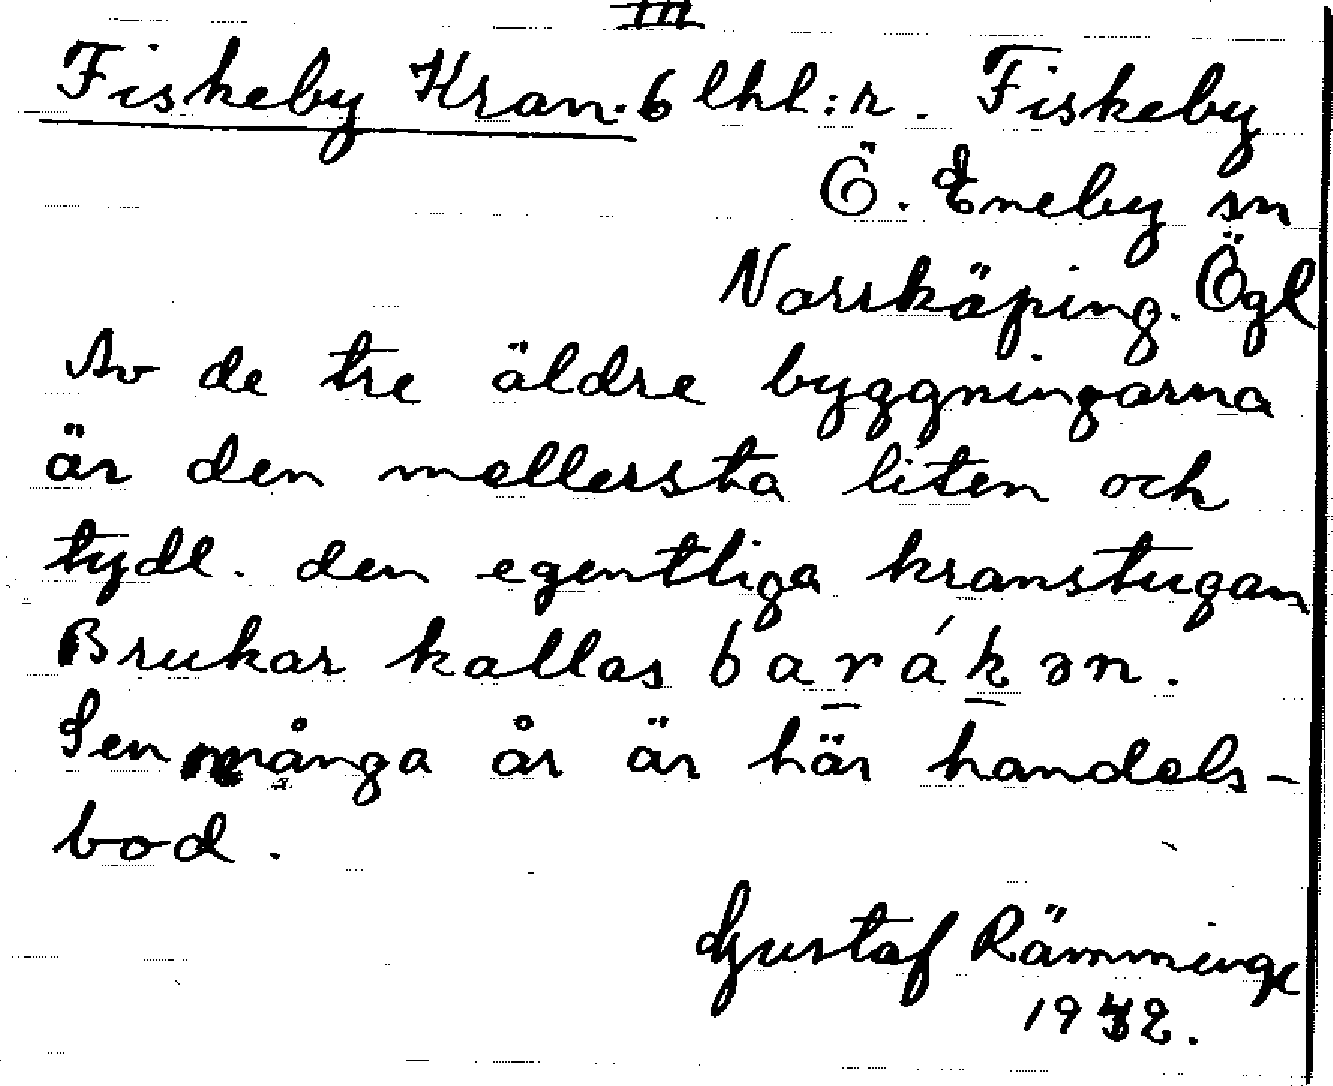 III
Fiskeby Kran. 6 lhl:r. Fiskeby
Ö. Eneby sn
Norrköping. Ögl
Av de tre äldre byggningarna
är den mellersta liten och
tydl. den egentliga kranstugan
Brukar kallas barákən.
Sen många år är här handels-
bod.
Gustaf Rämminge
1932.